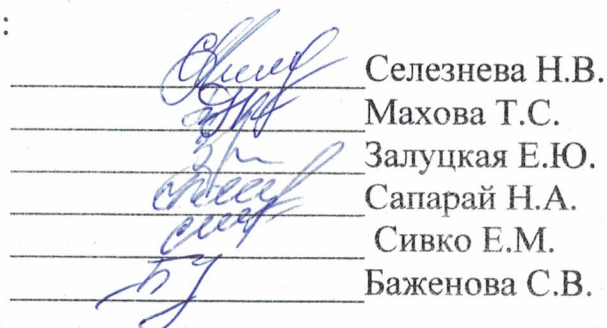 :
Селезнева Н.В.
Махова Т.С.
Залуцкая Е.Ю.
Сапарай Н.А.
Сивко Е.М.
Баженова С.В.